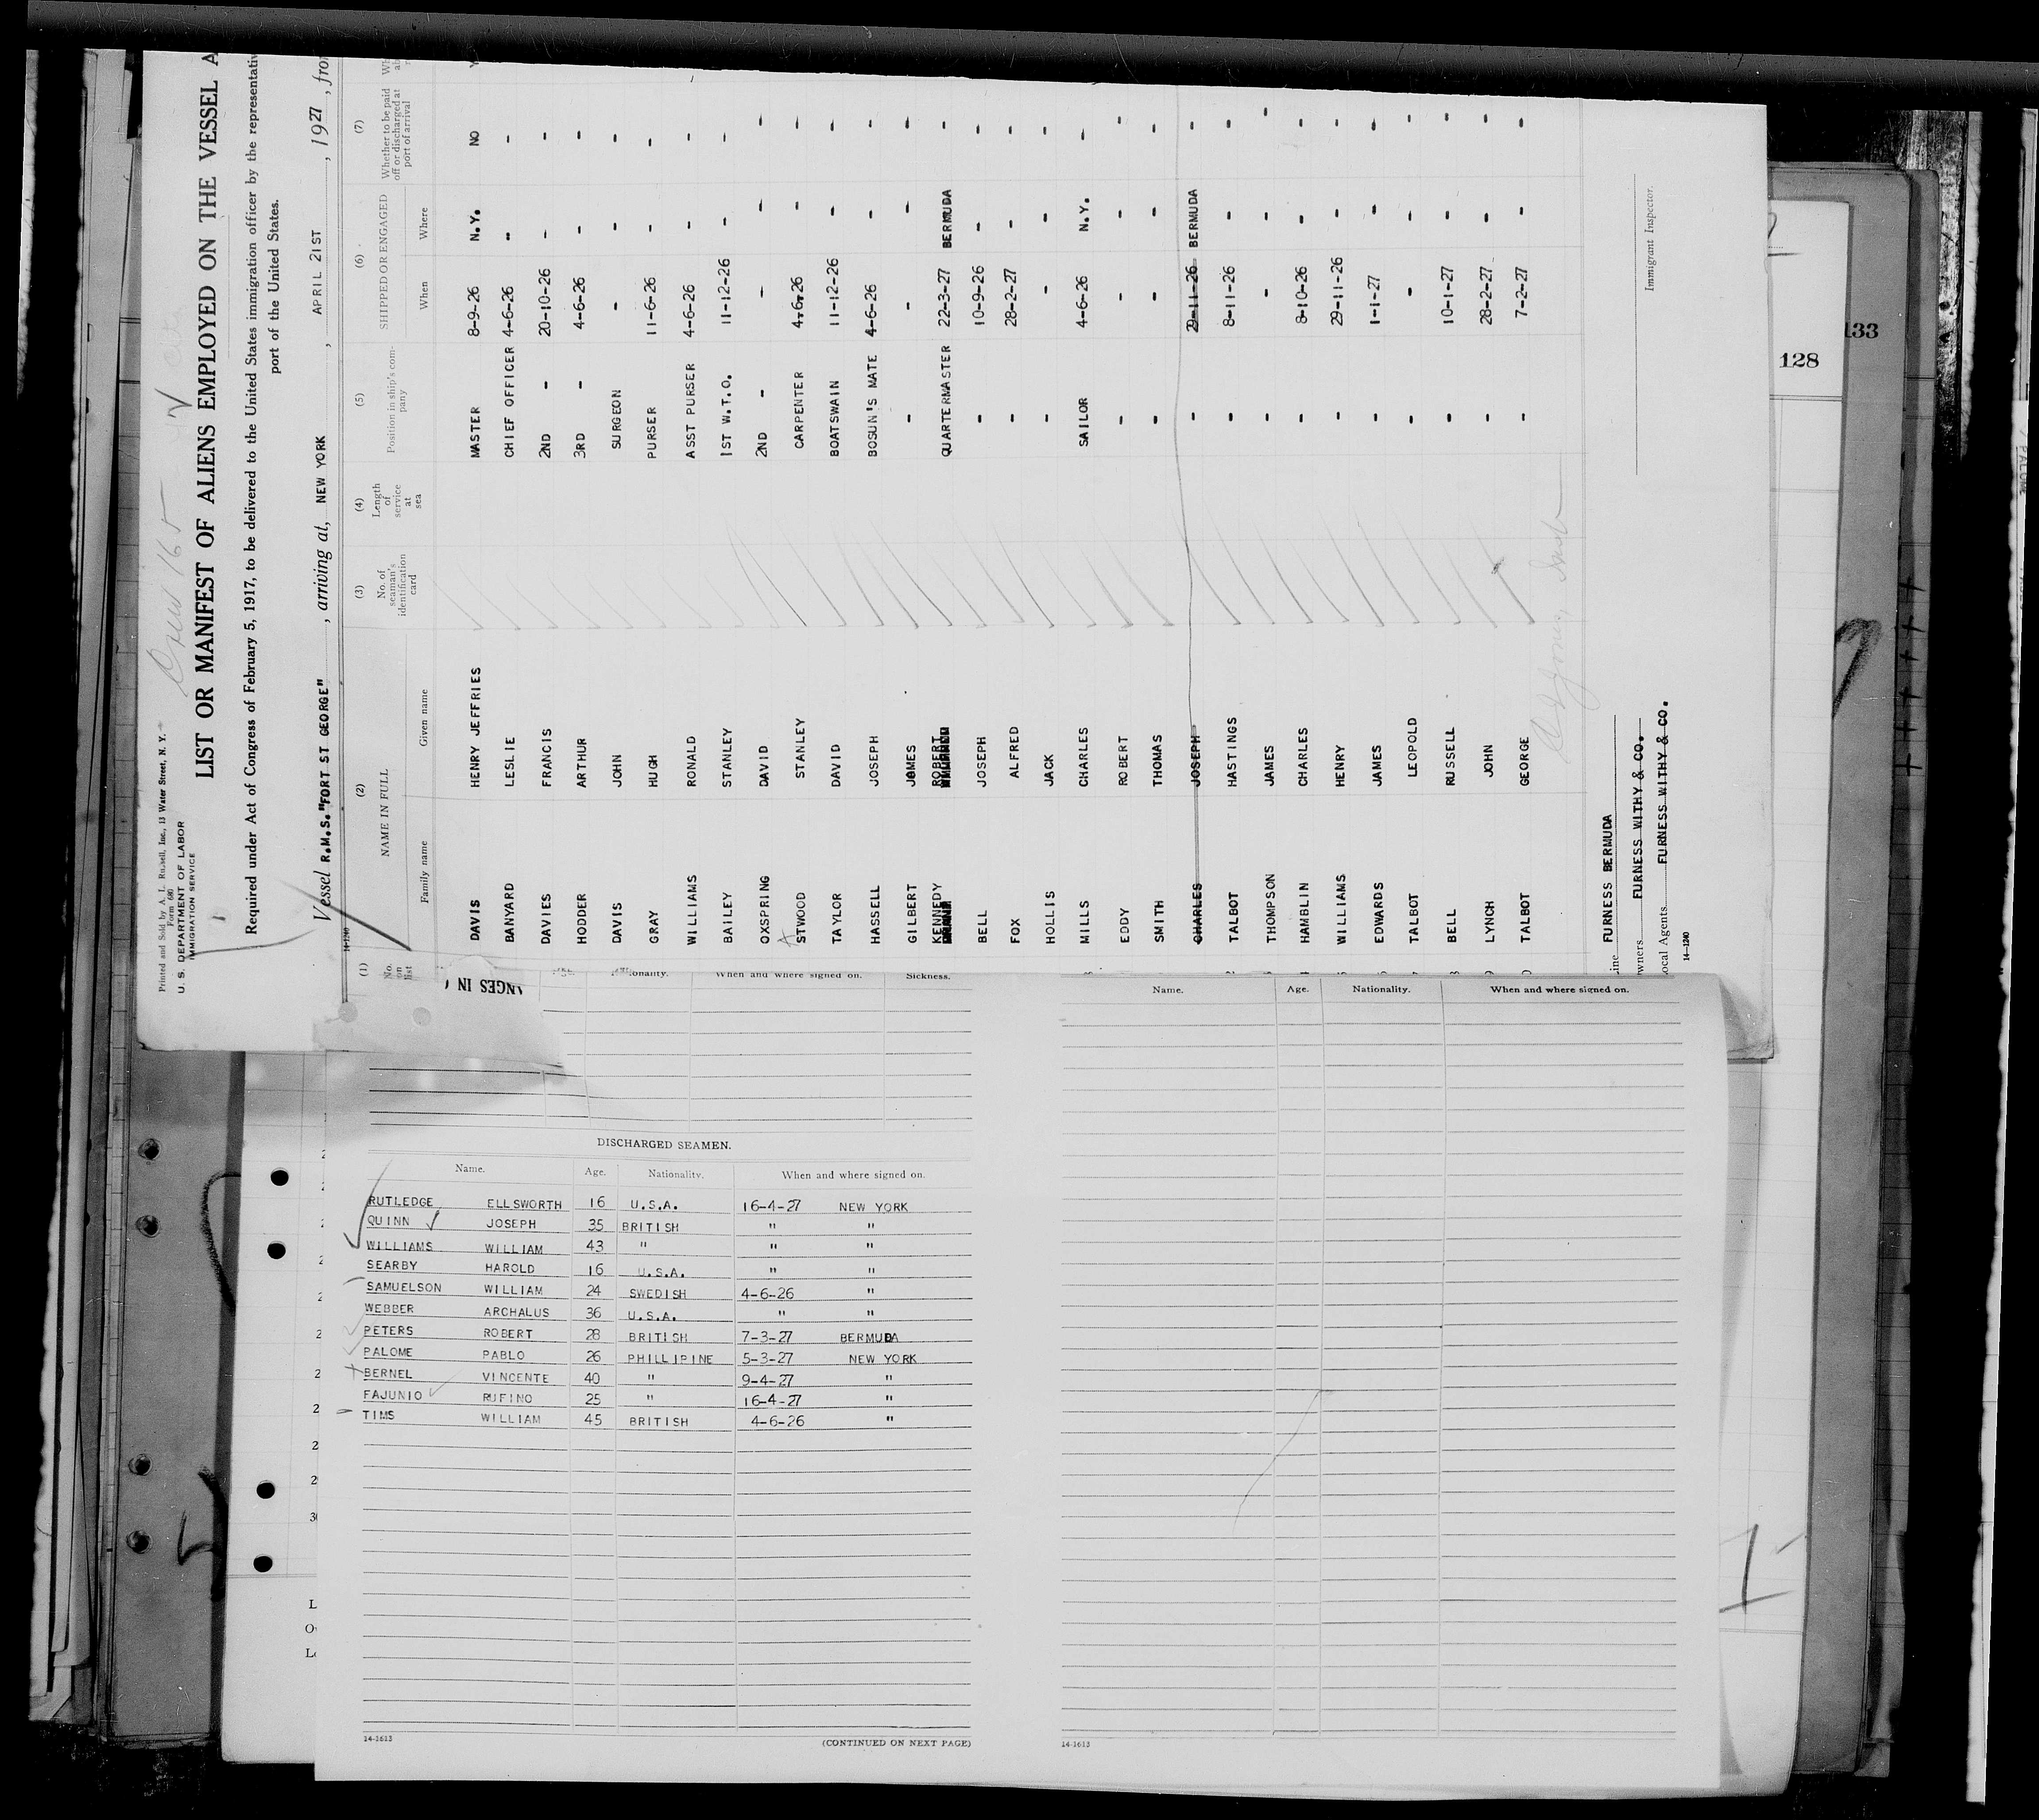 Printed and Sold by A. L. Russell, Inc., 13 Water Street, N. Y.
Form 680
U. S. DEPARTMENT OF LABOR
IMMIGRATION SERVICE
LIST OR MANIFEST OF ALIENS EMPLOYED ON THE VESSEL A
Required under Act of Congress of February 5, 1917, to be delivered to the United States immigration officer by the representativ
port of the United States.
Vessel R.M.S."FORT ST GEORGE", arriving at, NEW YORK, APRIL 21ST, 1927, from
14-1240
(1) (2) (3) (4) (5) (6) (7)
No. on list NAME IN FULL No. of seaman's identification card Length of service at sea Position in ship's company SHIPPED OR ENGAGED Whether to be paid off or discharged at port of arrival
Family name Given name When Where
DAVIS HENRY JEFFRIES MASTER 8-9-26 N.Y. NO
BANYARD LESLIE CHIEF OFFICER 4-6-26 - -
DAVIES FRANCIS 2ND - 20-10-26 - -
HODDER ARTHUR 3RD - 4-6-26 - -
DAVIS JOHN SURGEON - - -
GRAY HUGH PURSER 11-6-26 - -
WILLIAMS RONALD ASST PURSER 4-6-26 - -
BAILEY STANLEY 1ST W.T.O. 11-12-26 - -
OXSPRING DAVID 2ND - - - -
STWOOD STANLEY CARPENTER 4-6-26 - -
TAYLOR DAVID BOATSWAIN 11-12-26 - -
HASSELL JOSEPH BOSUN'S MATE 4-6-26 - -
GILBERT JAMES - - - -
KENNEDY ROBERT QUARTERMASTER 22-3-27 BERMUDA -
BELL JOSEPH - 10-9-26 - -
FOX ALFRED - 28-2-27 - -
HOLLIS JACK - - - -
MILLS CHARLES SAILOR 4-6-26 N.Y. -
EDDY ROBERT - - - -
SMITH THOMAS - - - -
CHARLES JOSEPH - 29-11-26 BERMUDA -
TALBOT HASTINGS - 8-11-26 - -
THOMPSON JAMES - - - -
HAMBLIN CHARLES - 8-10-26 - -
WILLIAMS HENRY - 29-11-26 - -
EDWARDS JAMES - 1-1-27 - -
TALBOT LEOPOLD - - - -
BELL RUSSELL - 10-1-27 - -
LYNCH JOHN - 28-2-27 - -
TALBOT GEORGE - 7-2-27 - -
Line FURNESS BERMUDA
Owners FURNESS WITHY & CO.
Local Agents FURNESS WITHY & CO.
14-1240
Immigrant Inspector.
133
128
ANGES IN
Nationality. When and where signed on. Sickness.
DISCHARGED SEAMEN.
Name. Age. Nationality. When and where signed on.
RUTLEDGE ELLSWORTH 16 U.S.A. 16-4-27 NEW YORK
QUINN JOSEPH 35 BRITISH " "
WILLIAMS WILLIAM 43 " " "
SEARBY HAROLD 16 U.S.A. " "
SAMUELSON WILLIAM 24 SWEDISH 4-6-26 "
WEBBER ARCHALUS 36 U.S.A. " "
PETERS ROBERT 28 BRITISH 7-3-27 BERMUDA
PALOME PABLO 26 PHILLIPINE 5-3-27 NEW YORK
BERNEL VINCENTE 40 " 9-4-27 "
FAJUNIO RUFINO 25 " 16-4-27 "
TIMS WILLIAM 45 BRITISH 4-6-26 "
14-1613
(CONTINUED ON NEXT PAGE)
Name. Age. Nationality. When and where signed on.
14-1613